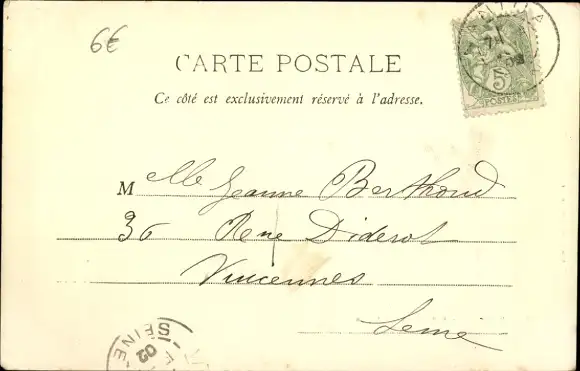 6€
CARTE POSTALE
Ce côté est exclusivement réservé à l'adresse.
M lle Jeanne Berthoud
36 Rue Diderot
Vincennes
Seine
5
POSTES
SEINE
02